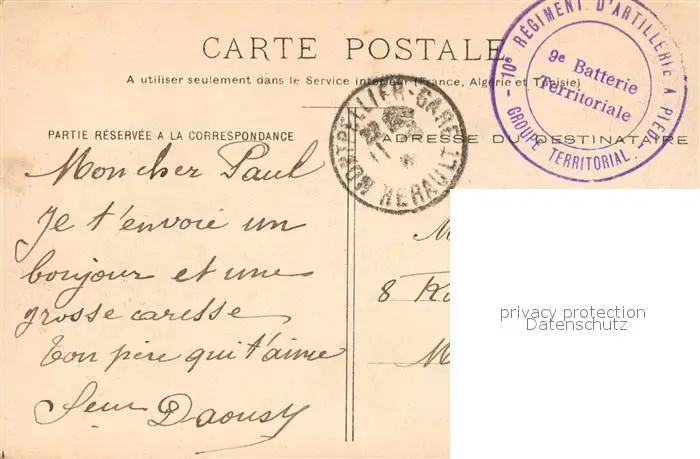 CARTE POSTALE
A utiliser seulement dans le Service intérieur (France, Algérie et Tunisie)
10e RÉGIMENT D'ARTILLERIE A PIED
GROUPE TERRITORIAL
9e Batterie
Territoriale
MONTPELLIER-GARE
HERAULT
PARTIE RÉSERVÉE A LA CORRESPONDANCE
ADRESSE DU DESTINATAIRE
Mon cher Paul
Je t'envoie un
bonjour et une
grosse caresse
Ton père qui t'aime
8
privacy protection
Datenschutz